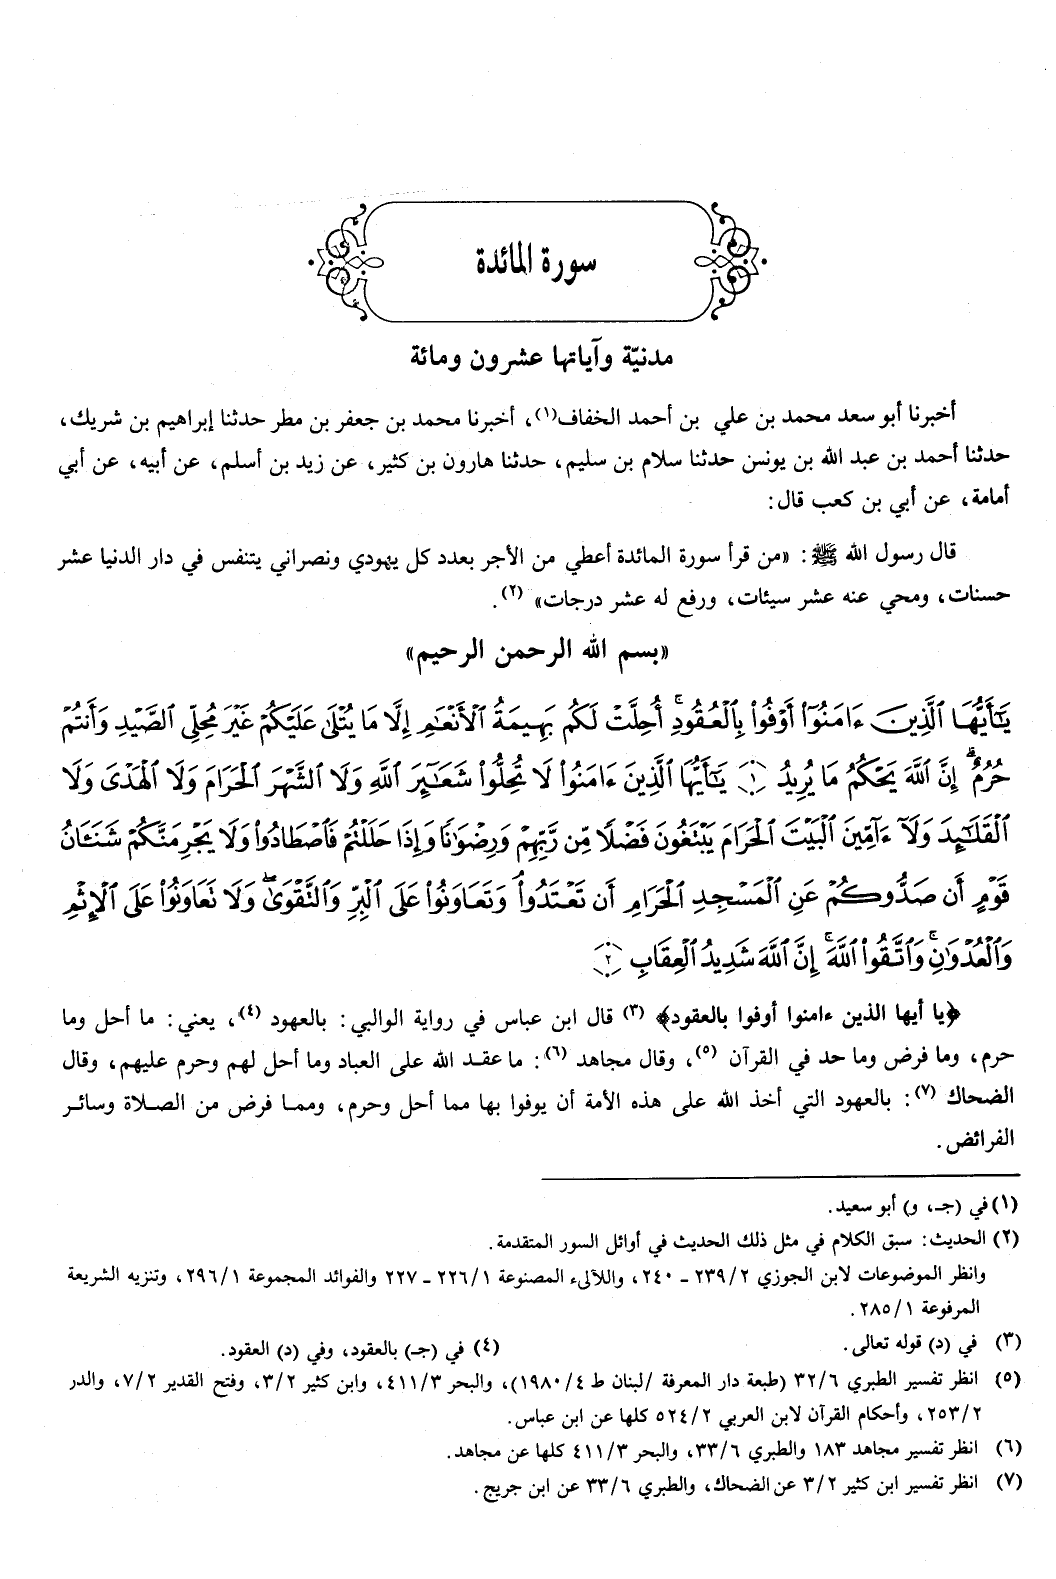 سورة المائدة
مدنيّة وآياتها عشرون ومائة
أخبرنا أبو سعد محمد بن علي بن أحمد الخفاف(١)، أخبرنا محمد بن جعفر بن مطر حدثنا إبراهيم بن شريك،
حدثنا أحمد بن عبد الله بن يونس حدثنا سلام بن سليم، حدثنا هارون بن كثير، عن زيد بن أسلم، عن أبيه، عن أبي
أمامة، عن أبي بن كعب قال:
قال رسول الله ﷺ: «من قرأ سورة المائدة أعطي من الأجر بعدد كل يهودي ونصراني يتنفس في دار الدنيا عشر
حسنات، ومحي عنه عشر سيئات، ورفع له عشر درجات» (٢).
«بسم الله الرحمن الرحيم»
يَٰٓأَيُّهَا ٱلَّذِينَ ءَامَنُوٓا۟ أَوْفُوا۟ بِٱلْعُقُودِ ۚ أُحِلَّتْ لَكُم بَهِيمَةُ ٱلْأَنْعَٰمِ إِلَّا مَا يُتْلَىٰ عَلَيْكُمْ غَيْرَ مُحِلِّى ٱلصَّيْدِ وَأَنتُمْ
حُرُمٌ ۗ إِنَّ ٱللَّهَ يَحْكُمُ مَا يُرِيدُ ١ يَٰٓأَيُّهَا ٱلَّذِينَ ءَامَنُوا۟ لَا تُحِلُّوا۟ شَعَٰٓئِرَ ٱللَّهِ وَلَا ٱلشَّهْرَ ٱلْحَرَامَ وَلَا ٱلْهَدْىَ وَلَا
ٱلْقَلَٰٓئِدَ وَلَآ ءَآمِّينَ ٱلْبَيْتَ ٱلْحَرَامَ يَبْتَغُونَ فَضْلًا مِّن رَّبِّهِمْ وَرِضْوَٰنًا وَإِذَا حَلَلْتُمْ فَٱصْطَادُوا۟ وَلَا يَجْرِمَنَّكُمْ شَنَـَٔانُ
قَوْمٍ أَن صَدُّوكُمْ عَنِ ٱلْمَسْجِدِ ٱلْحَرَامِ أَن تَعْتَدُوا۟ وَتَعَاوَنُوا۟ عَلَى ٱلْبِرِّ وَٱلتَّقْوَىٰ ۖ وَلَا تَعَاوَنُوا۟ عَلَى ٱلْإِثْمِ
وَٱلْعُدْوَٰنِ ۚ وَٱتَّقُوا۟ ٱللَّهَ ۚ إِنَّ ٱللَّهَ شَدِيدُ ٱلْعِقَابِ ٢
﴿يا أيها الذين ءامنوا أوفوا بالعقود﴾ (٣) قال ابن عباس في رواية الوالبي: بالعهود (٤)، يعني: ما أحل وما
حرم، وما فرض وما حد في القرآن (٥)، وقال مجاهد (٦): ما عقد الله على العباد وما أحل لهم وحرم عليهم، وقال
الضحاك (٧): بالعهود التي أخذ الله على هذه الأمة أن يوفوا بها مما أحل وحرم، ومما فرض من الصلاة وسائر
الفرائض.
(١) في (جـ، و) أبو سعيد.
(٢) الحديث: سبق الكلام في مثل ذلك الحديث في أوائل السور المتقدمة.
وانظر الموضوعات لابن الجوزي ٢٣٩/٢ ـ ٢٤٠، واللآلىء المصنوعة ٢٢٦/١ ـ ٢٢٧ والفوائد المجموعة ٢٩٦/١، وتنزيه الشريعة
المرفوعة ٢٨٥/١.
(٣) في (د) قوله تعالى. (٤) في (جـ) بالعقود، وفي (د) العقود.
(٥) انظر تفسير الطبري ٣٢/٦ (طبعة دار المعرفة /لبنان ط ١٩٨٠/٤)، والبحر ٤١١/٣، وابن كثير ٣/٢، وفتح القدير ٧/٢، والدر
٢٥٣/٢، وأحكام القرآن لابن العربي ٥٢٤/٢ كلها عن ابن عباس.
(٦) انظر تفسير مجاهد ١٨٣ والطبري ٣٣/٦، والبحر ٤١١/٣ كلها عن مجاهد.
(٧) انظر تفسير ابن كثير ٣/٢ عن الضحاك، والطبري ٣٣/٦ عن ابن جريج.